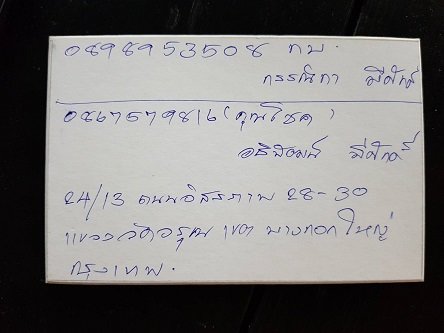 0898953508 ทบ.
กรรณิกา มีศักดิ์
0867579816 (คุณโชค)
มีศักดิ์
24/13 ถนนอิสรภาพ 28-30
แขวงวัดอรุณ เขต บางกอกใหญ่
กรุงเทพ.